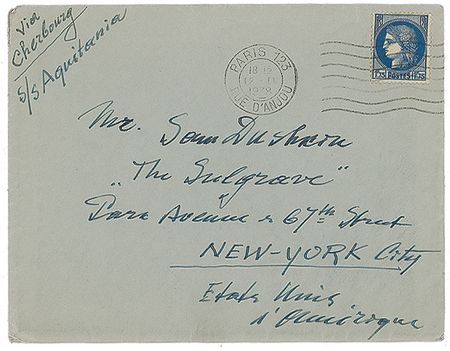 via
Cherbourg
s/s Aquitania
PARIS 123
RUE D'ANJOU
POSTES
Mr. Sam Dushkin
"The Sulgrave"
Park Avenue & 67th Street
NEW-YORK City
Etats Unis
d'Amérique